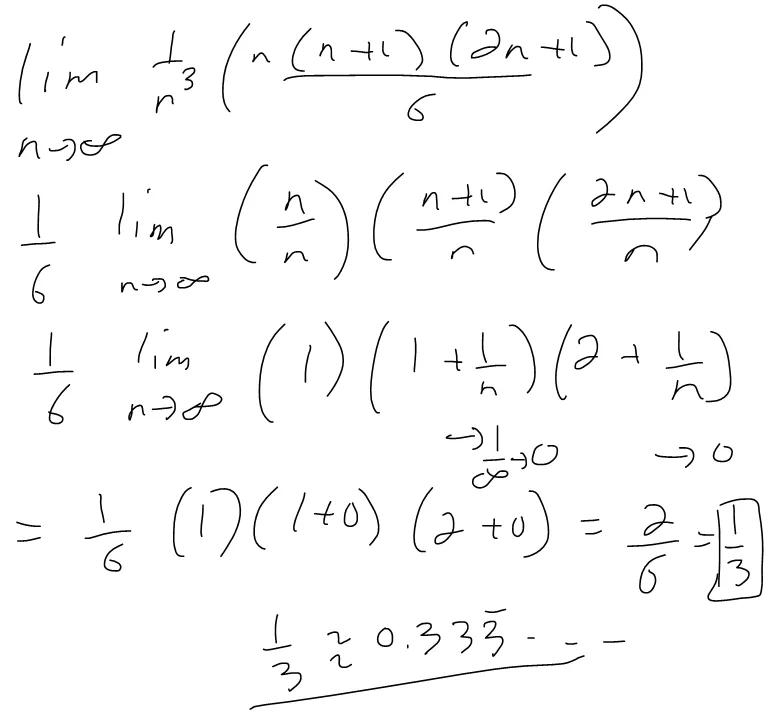 lim n→∞ 1/n³ (n(n+1)(2n+1)/6)
1/6 lim n→∞ (n/n) (n+1/n) (2n+1/n)
1/6 lim n→∞ (1) (1 + 1/n) (2 + 1/n)
→ 1/∞ → 0 → 0
= 1/6 (1)(1+0)(2+0) = 2/6 = 1/3
1/3 ≈ 0.333̅ - - - -